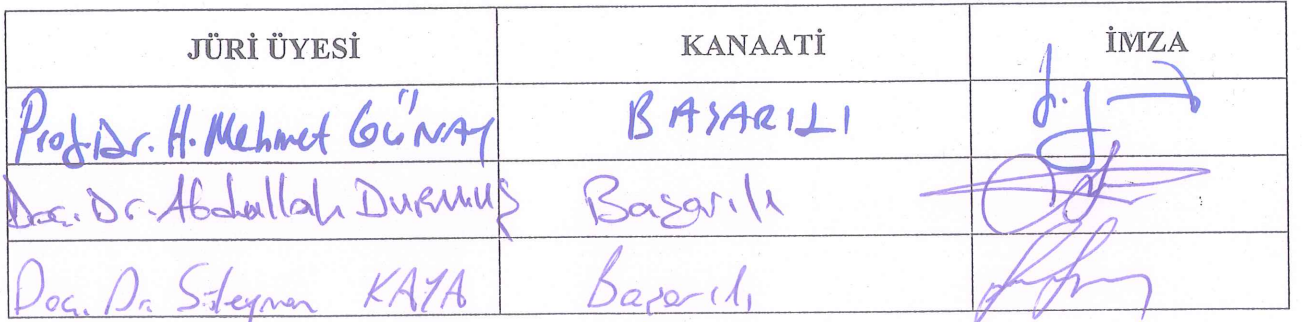 JÜRİ ÜYESİ KANAATİ İMZA
Prof. Dr. H. Mehmet GÜNAY BAŞARILI
Doç. Dr. Abdullah DURMUŞ Başarılı
Doç. Dr. Süleyman KAYA Başarılı